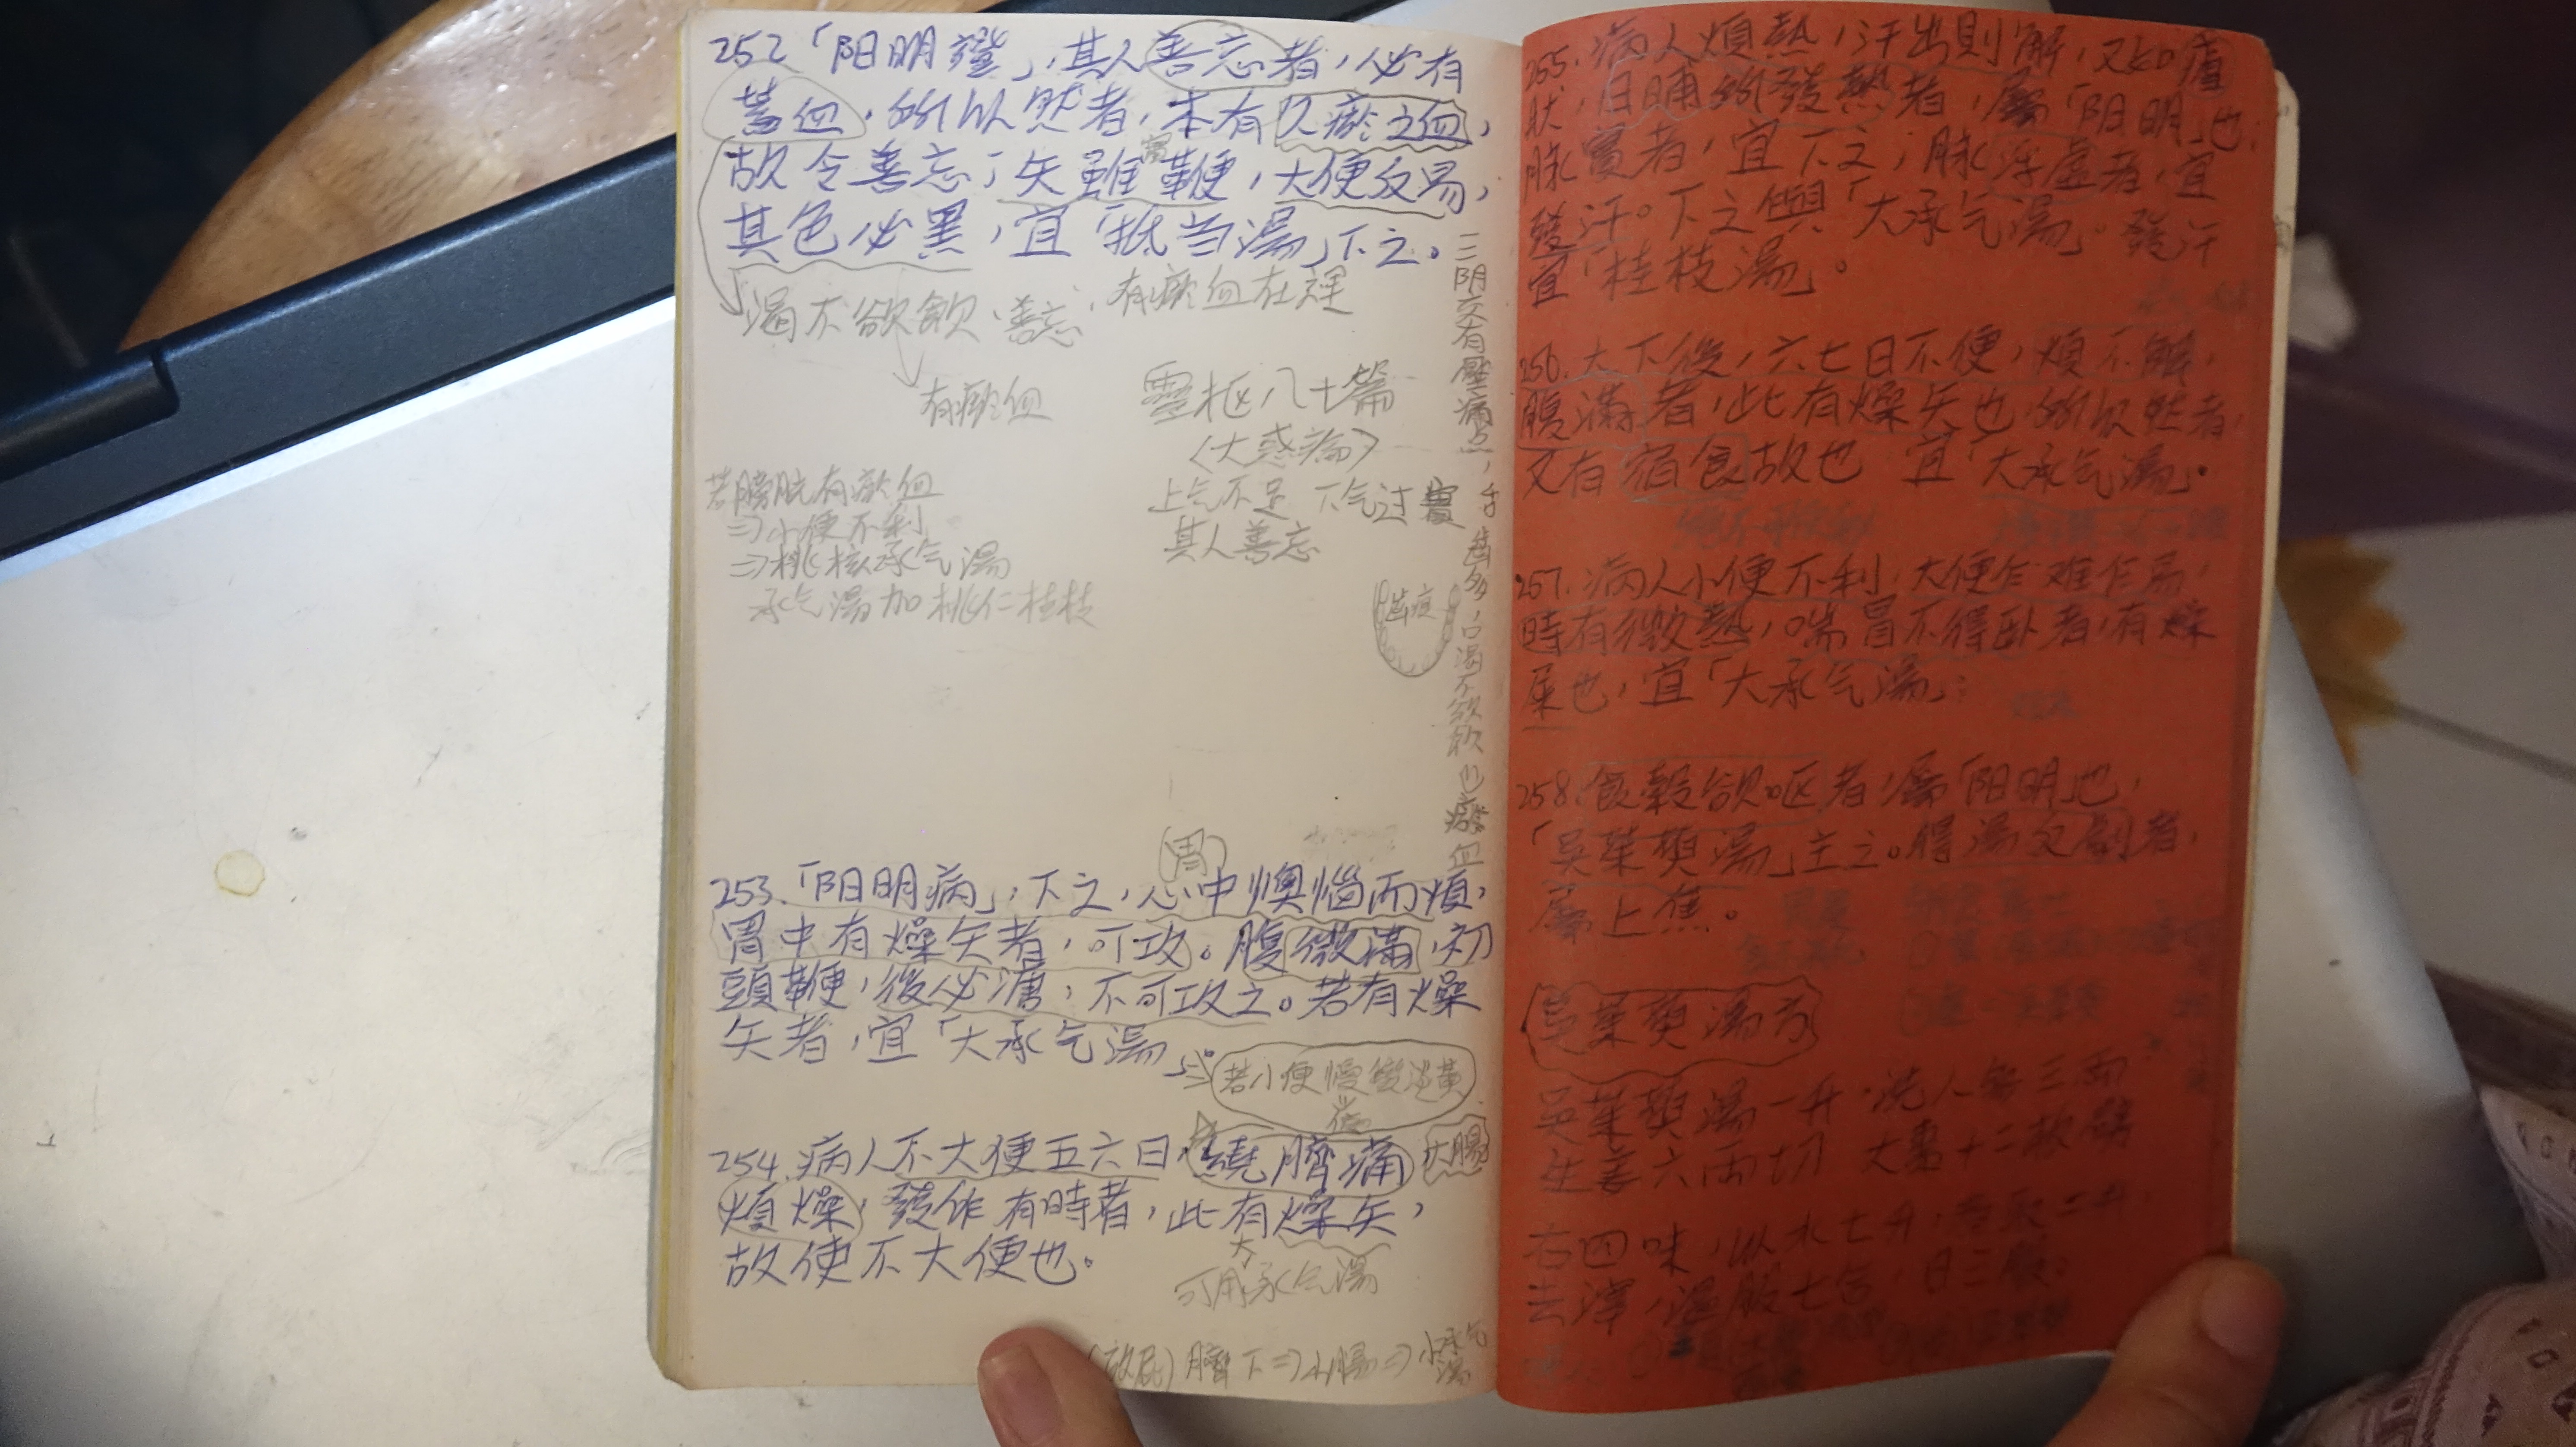 252「阳明證」，其人善忘者，必有
蓄血，所以然者，本有久瘀之血，
故令善忘；矢雖鞕，大便反易，
其色必黑，宜「抵当湯」下之。
渴不欲飲，善忘，有瘀血在裡
有瘀血
若膀胱有瘀血
⇒小便不利
⇒桃核承气湯
承气湯加桃仁桂枝
靈枢八十篇
〈大惑論〉
上气不足 下气过實
其人善忘
三阴交有壓痛点，
齿痕
口渴不欲飲也瘀血
胃
253.「阳明病」，下之，心中懊惱而煩，
胃中有燥矢者，可攻。腹微滿，初
頭鞕，後必溏，不可攻之。若有燥
矢者，宜「大承气湯」
若小便慢變淡黃
254.病人不大便五六日，繞臍痛
大腸
煩燥，發作有時者，此有燥矢，
故使不大便也。
可用大承气湯
(放屁) 臍下⇒小腸⇒小承气湯
255.病人煩熱，汗出則解，又如瘧
狀，日晡所發熱者，屬「阳明」也；
脉實者，宜下之；脉浮虛者，宜
發汗。下之與「大承气湯」。發汗
宜「桂枝湯」。
256.大下後，六七日不便，煩不解，
腹滿者，此有燥矢也，所以然者，
又有宿食故也 宜「大承气湯」。
257.病人小便不利，大便乍难乍易，
時有微熱，喘冒不得卧者，有燥
屎也，宜「大承气湯」。
258.食穀欲呕者，屬「阳明」也，
「吳茱萸湯」主之。得湯反劇者，
屬上焦。
吳茱萸湯方
吳茱萸湯一升 洗 人參三兩
生姜六兩切 大棗十二枚擘
右四味，以水七升，煮取二升，
去滓，溫服七合，日三服。